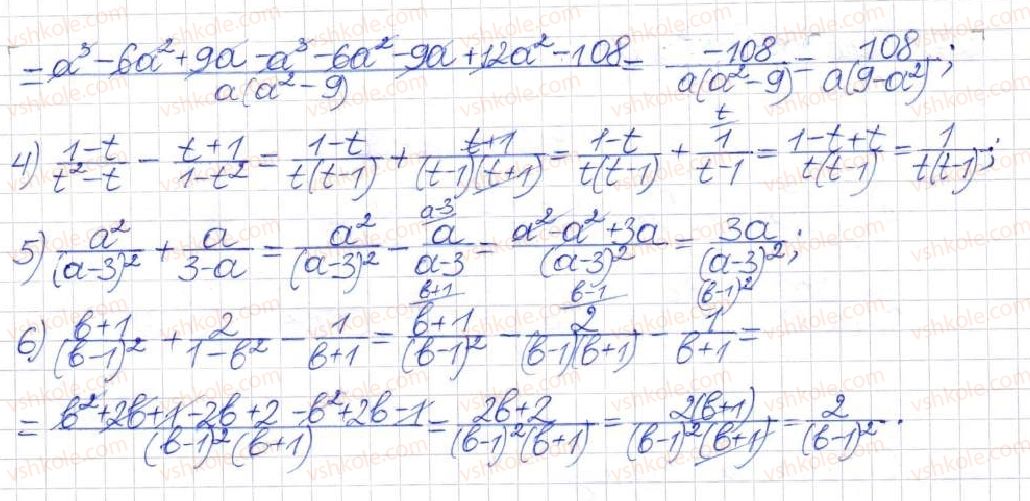 = a³ - 6a² + 9a - a³ - 6a² - 9a + 12a² - 108 / a(a² - 9) = -108 / a(a² - 9) = 108 / a(9 - a²);
4) 1-t / t²-t - t+1 / 1-t² = 1-t / t(t-1) + t+1 / (t-1)(t+1) = 1-t / t(t-1) + 1 / t-1 (t = 1-t+t / t(t-1) = 1 / t(t-1);
5) a² / (a-3)² + a / 3-a = a² / (a-3)² - a / a-3 (a-3 = a² - a² + 3a / (a-3)² = 3a / (a-3)²;
6) в+1 / (в-1)² + 2 / 1-в² - 1 / в+1 = в+1 / (в-1)² (в+1 - 2 / (в-1)(в+1) (в-1 - 1 / в+1 ((в-1)² =
= в² + 2в + 1 - 2в + 2 - в² + 2в - 1 / (в-1)²(в+1) = 2в+2 / (в-1)²(в+1) = 2(в+1) / (в-1)²(в+1) = 2 / (в-1)².
vshkole.com